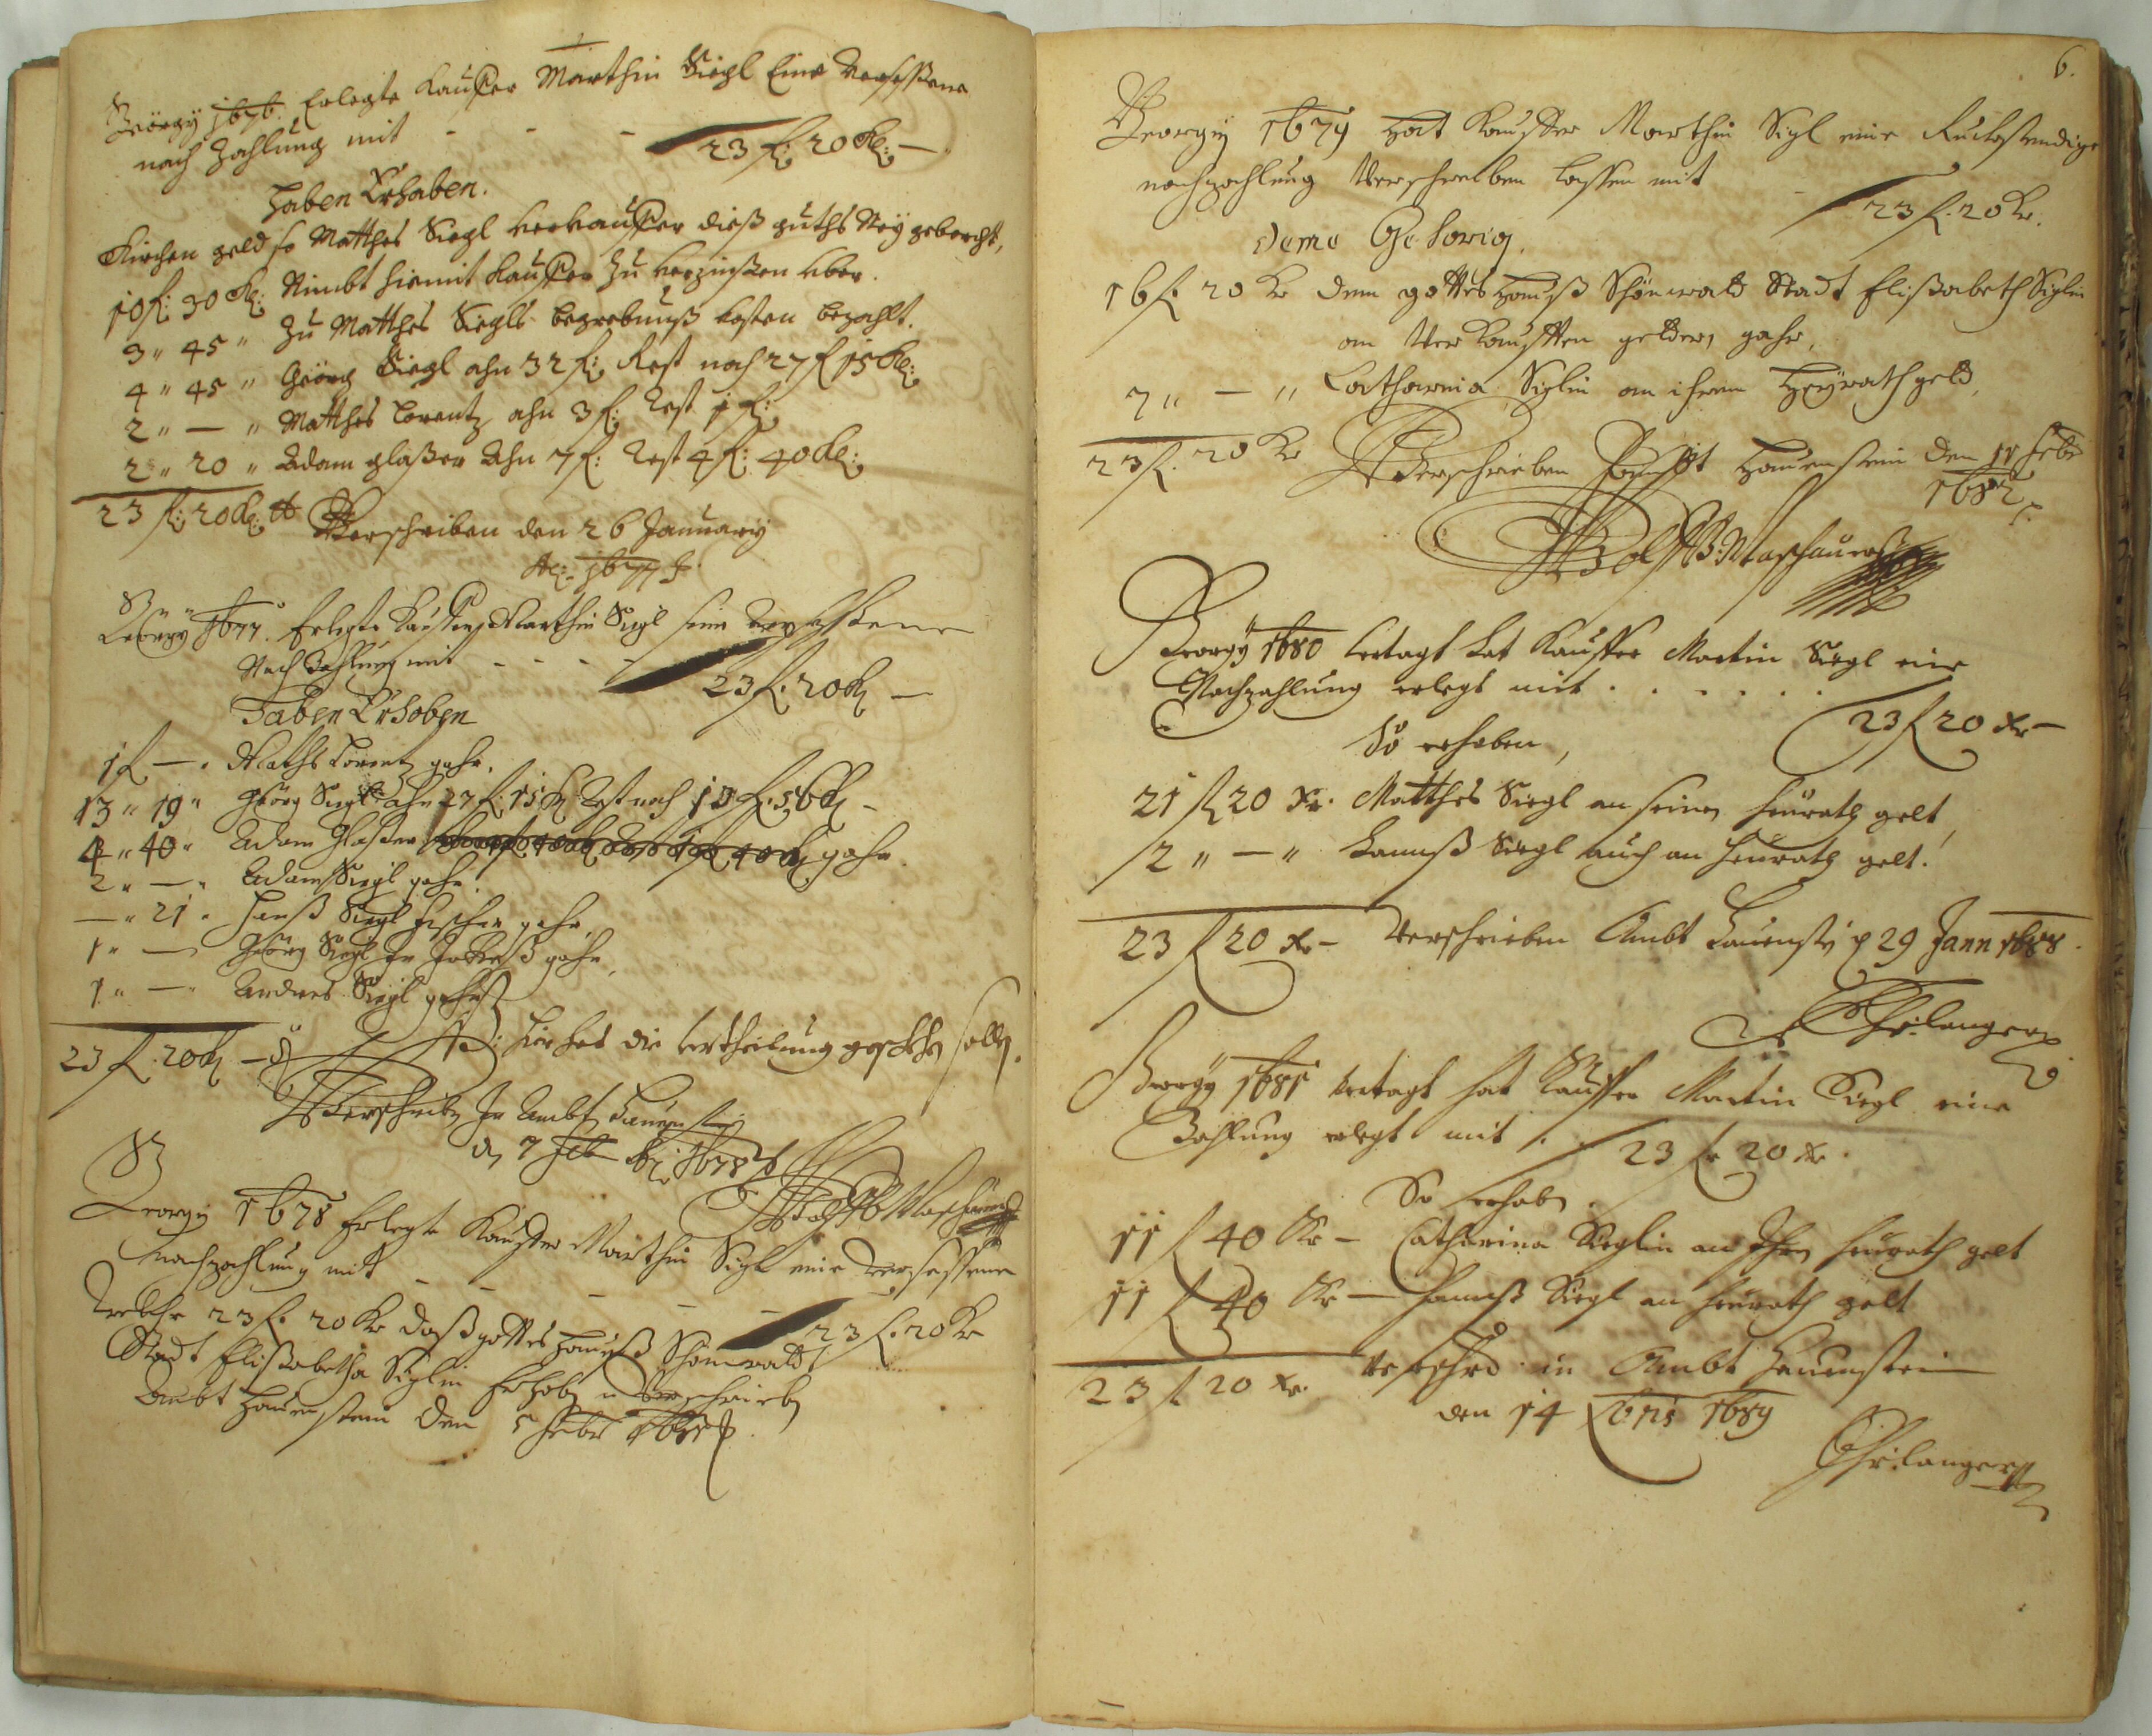 Geörgÿ 1676. Erlegte Kauffer Marthin Siegl Eine versessene
nach Zahlung mit - - - 23 fl: 20 Kr: —
Haben Erhaben.
Kirchen geld so Matthes Siegl verkauffer dieß guths
10 fl: 30 Kr: Nimbt hiemit Kauffer zu verzinßen uber.
3 " 45 " Zu Matthes Siegls begrebnuß kosten bezahlt.
4 " 45 " Geörg Siegl ahn 32 fl: Rest noch 27 fl 15 Kr:
2 " — " Matthes Lorentz ahn 3 fl: Rest 1 fl:
2 " 20 " Adam glaßer Ahn 7 fl: Rest 4 fl: 40 Kr:
23 fl: 20 Kr:
Verschrieben den 26 January
A: 1677
Geörgy 1677. Erlegte Kauffer Marthin Sigl seine versessene
Nach Zahlung mit - - - - 23 fl. 20 Kr —
Haben Erhoben
1 fl — " Maths Lorentz gahr.
13 " 19 " Geörg Siegl ahn 27 fl: 15 Kr Rest noch 13 fl. 56 Kr —
4 " 40 " Adam Glaßer gahr
2 " — " Adam Siegl gahr.
— " 21 " Hanß Siegl fischer gahr.
1 " — Geörg Siegl gahr,
1 " — " Andres Siegl gahr
23 fl. 20 Kr — hier hat die vertheilung geschehen sollen.
Verschrieben Im Ambt Hauenstein
den 7 Feb A: 1678
Georgy 1678 Erlegte Kauffer Marthin Sigl eine versessene
nachzahlung mit - - - - - 23 fl. 20 Kr
Welche 23 fl. 20 Kr daß gottes Hauß Schönwaldt
Stadt Elißabetha Siglin Erhoben u. Verschrieben
Ambt Hauenstein den 5 Febr
6.
Georgy 1679 Hat Kauffer Marthin Sigl eine Ruckstendige
nachzahlung Verschreiben lassen mit - 23 fl. 20 Kr.
Deme Gehörig.
16 fl. 20 Kr dem gottes Hauß Schönwald Stadt Elißabeth Siglin
an Verkaufften geldern gahr,
7 " — " Catharina Siglin an ihrem Heÿrathgeld,
23 fl. 20 Kr Verschrieben Hauenstein den 11 Febr
1682
Georgÿ 1680 vertagt hat Kauffer Martin Siegl eine
Nachzahlung erlegt mit . . . . . . 23 fl 20 xr —
So erhoben,
21 fl 20 xr. Matthes Siegl an seinen heurath gelt,
2 " — " Hannß Siegl auch an heurath gelt.
23 fl 20 xr — Verschrieben Ambt Hauenstein 29 Jann 1688
Chr: langer
Georgÿ 1681 vertagt hat Kauffer Martin Siegl eine
Zahlung erlegt mit . . 23 fl 20 xr.
So erhoben
11 fl 40 Kr — Catharina Sieglin an Ihren heurath gelt
11 fl 40 Kr — Hannß Siegl an heurath gelt
23 fl 20 xr. Verschrieben in Ambt Hauenstein
den 14 Xbris 1689
Chr: langer